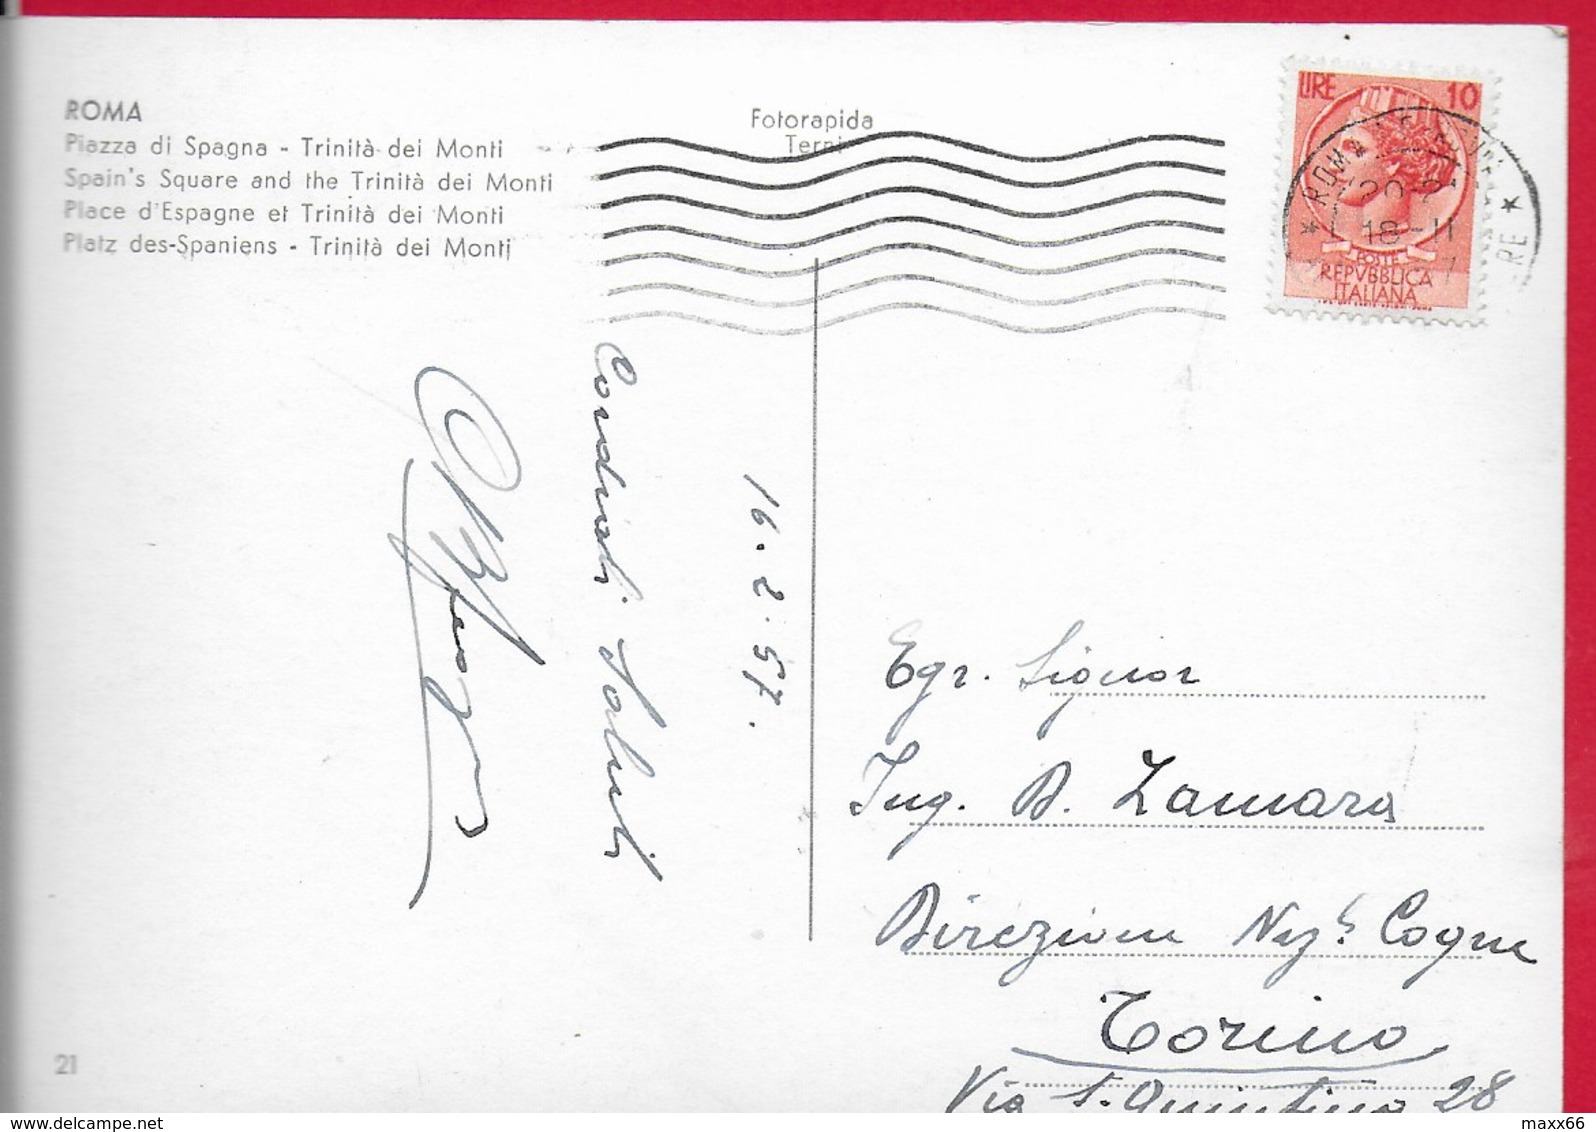 ROMA
Piazza di Spagna - Trinità dei Monti
Spain's Square and the Trinità dei Monti
Place d'Espagne et Trinità dei Monti
Platz des-Spaniens - Trinità dei Monti
Fotorapida
Terni
LIRE 10
POSTE
REPVBBLICA
ITALIANA
ROMA
18-II
16.2.57.
Cordiali Saluti
Egr. Signor
Ing. D. Zamara
Direzione Naz. Cogne
Torino
Via S. Quintino 28
21
delcampe.net
maxx66